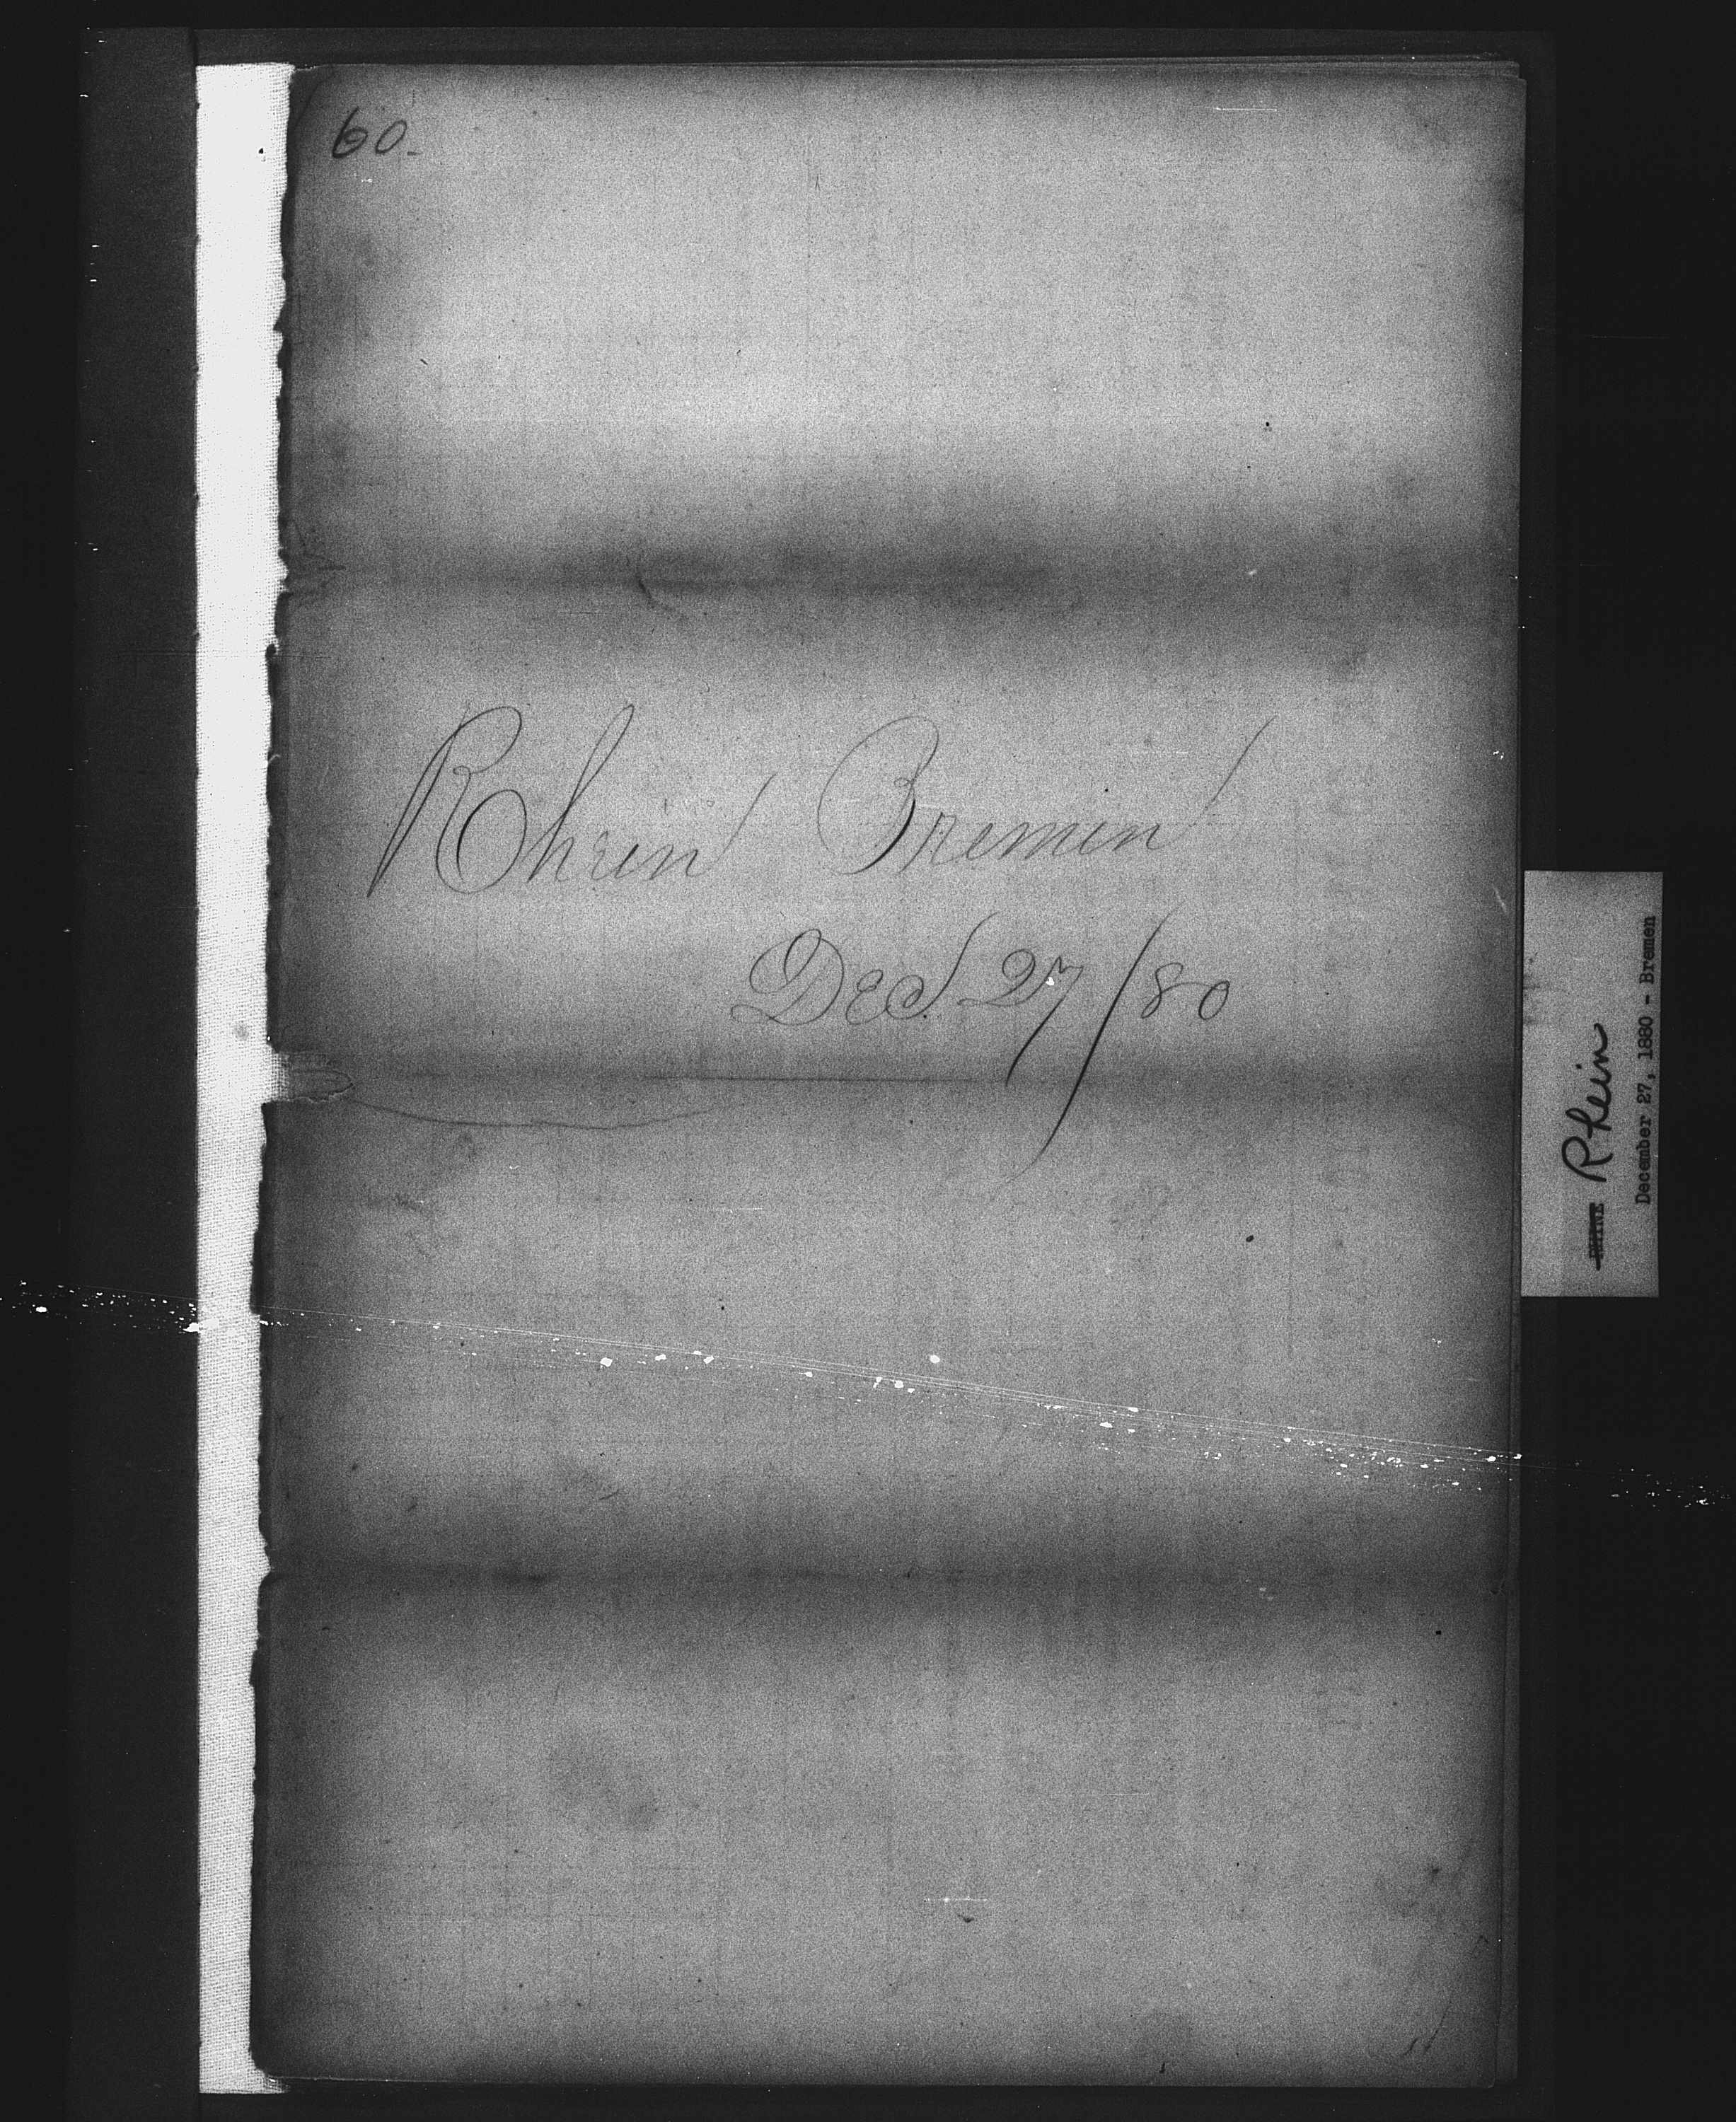 60.
Rhein Bremen
Dec 27/80
Rhein
December 27, 1880 - Bremen